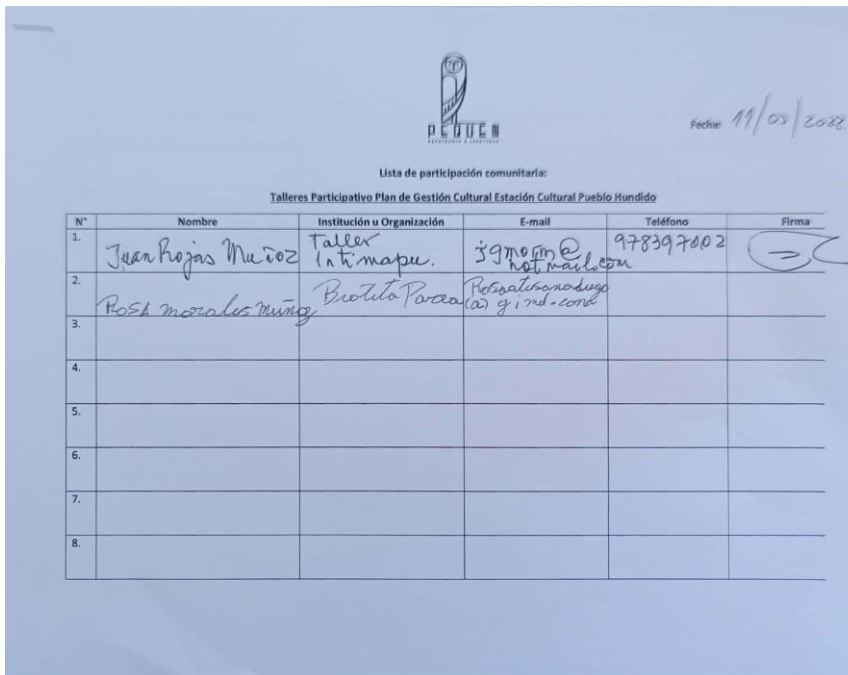 PEQUEN
PATRIMONIO E IDENTIDAD
Fecha: 11/03/2022
Lista de participación comunitaria:
Talleres Participativo Plan de Gestión Cultural Estación Cultural Pueblo Hundido
N° Nombre Institución u Organización E-mail Teléfono Firma
1. Juan Rojas Muñoz Taller Intimapu. jgmorm@hotmail.com 978397002
2. Rosa Morales Muñoz
3.
4.
5.
6.
7.
8.